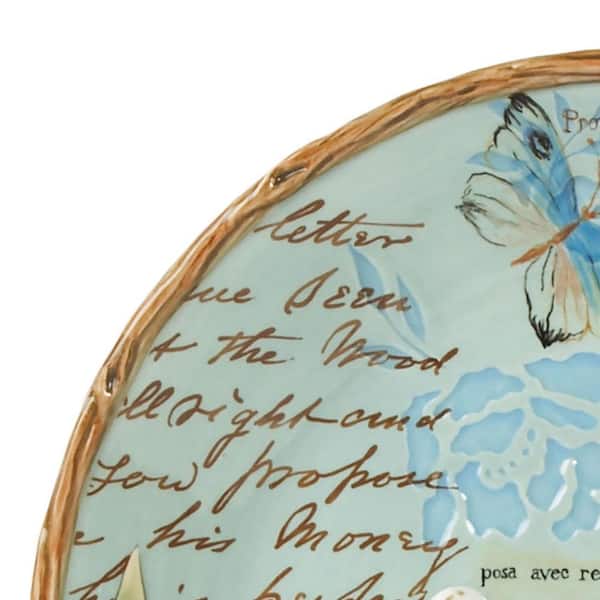 Pro
letter
ue Seen
t the Wood
ll right and
Low propose
e his Money
posa avec re